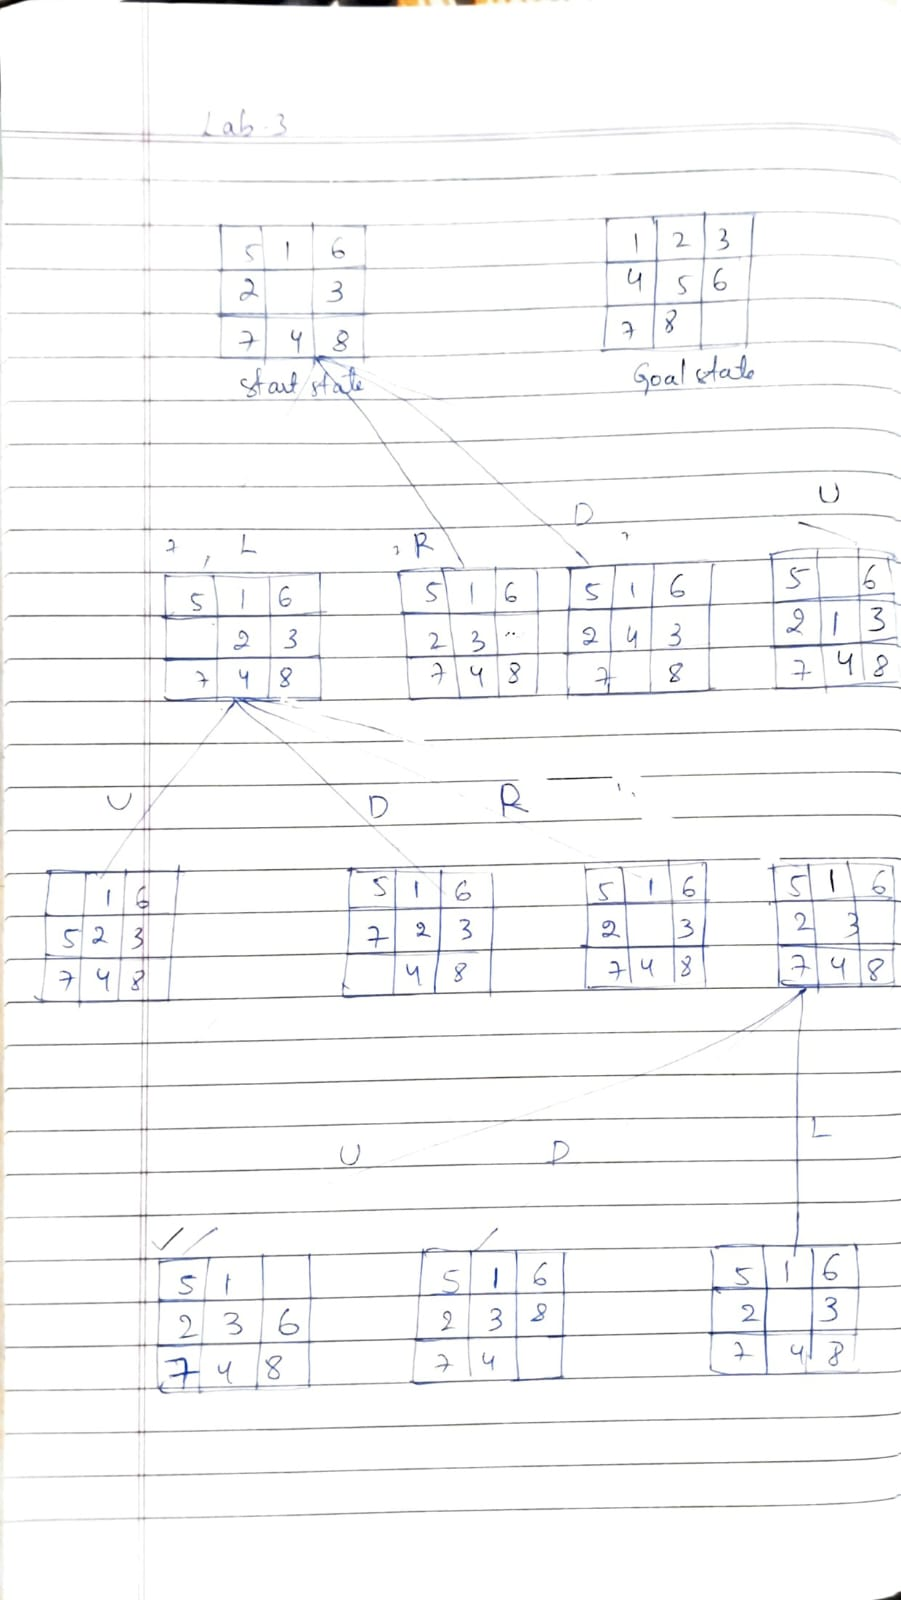 Lab-3
5 1 6
2 3
7 4 8
Start state
1 2 3
4 5 6
7 8
Goal state
L
5 1 6
2 3
7 4 8
R
5 1 6
2 3
7 4 8
D
5 1 6
2 4 3
7 8
U
5 6
2 1 3
7 4 8
U
1 6
5 2 3
7 4 8
D
5 1 6
7 2 3
4 8
R
5 1 6
2 3
7 4 8
5 1 6
2 3
7 4 8
U
5 1
2 3 6
7 4 8
D
5 1 6
2 3 8
7 4
L
5 1 6
2 3
7 4 8